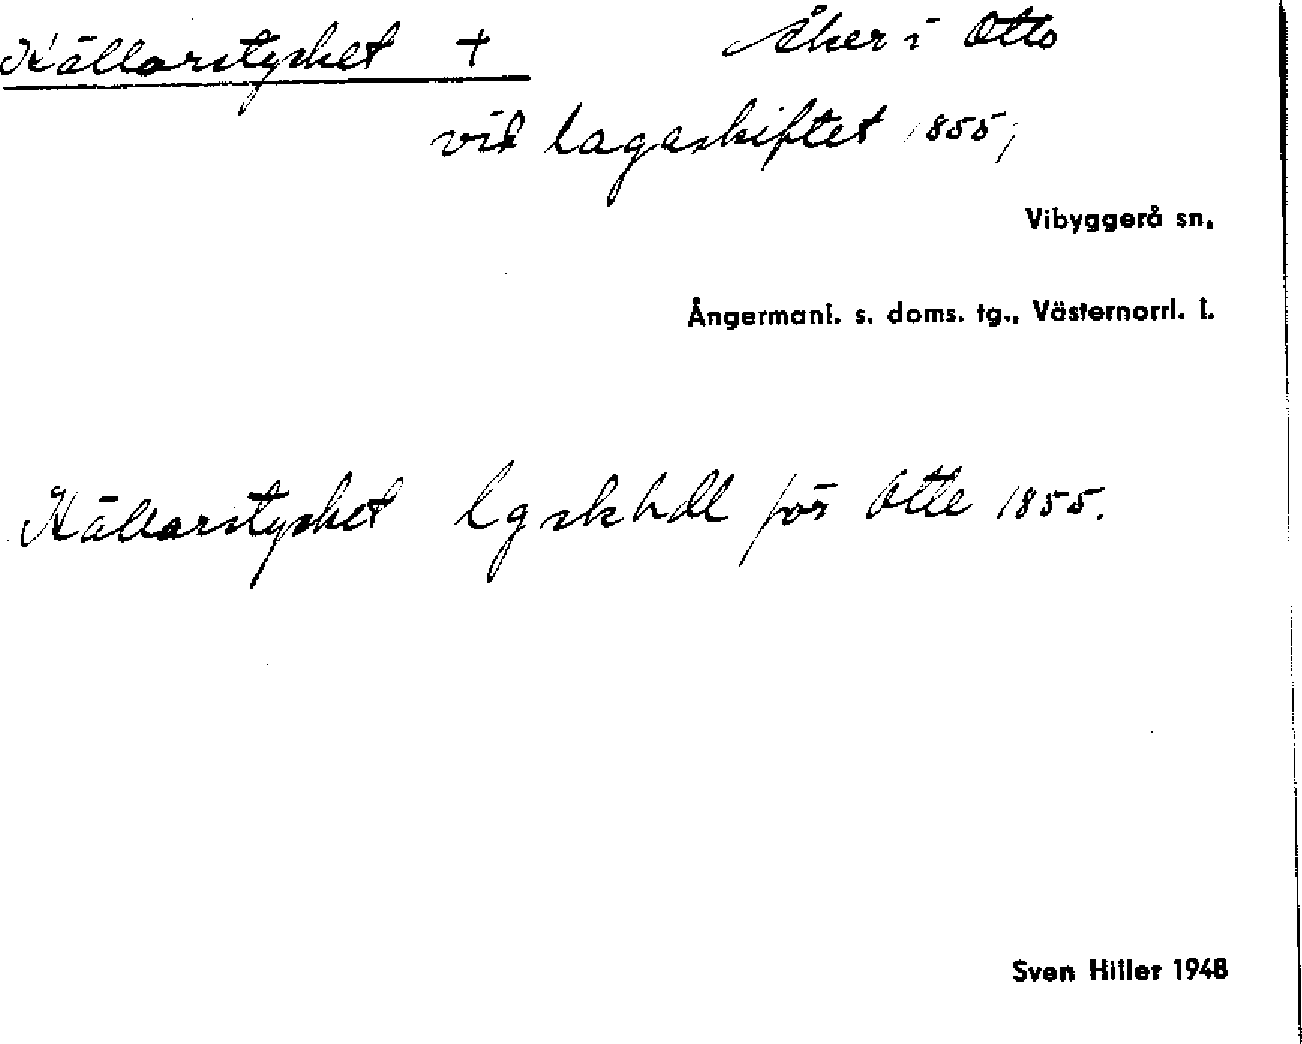 Källarstycket + Åker i Otto
vid Lagaskiftet 1855,
Vibyggerå sn.
Ångermanl. s. doms. tg., Västernorrl. l.
Källarstycket lgskhdl för Otte 1855.
Sven Hiller 1948